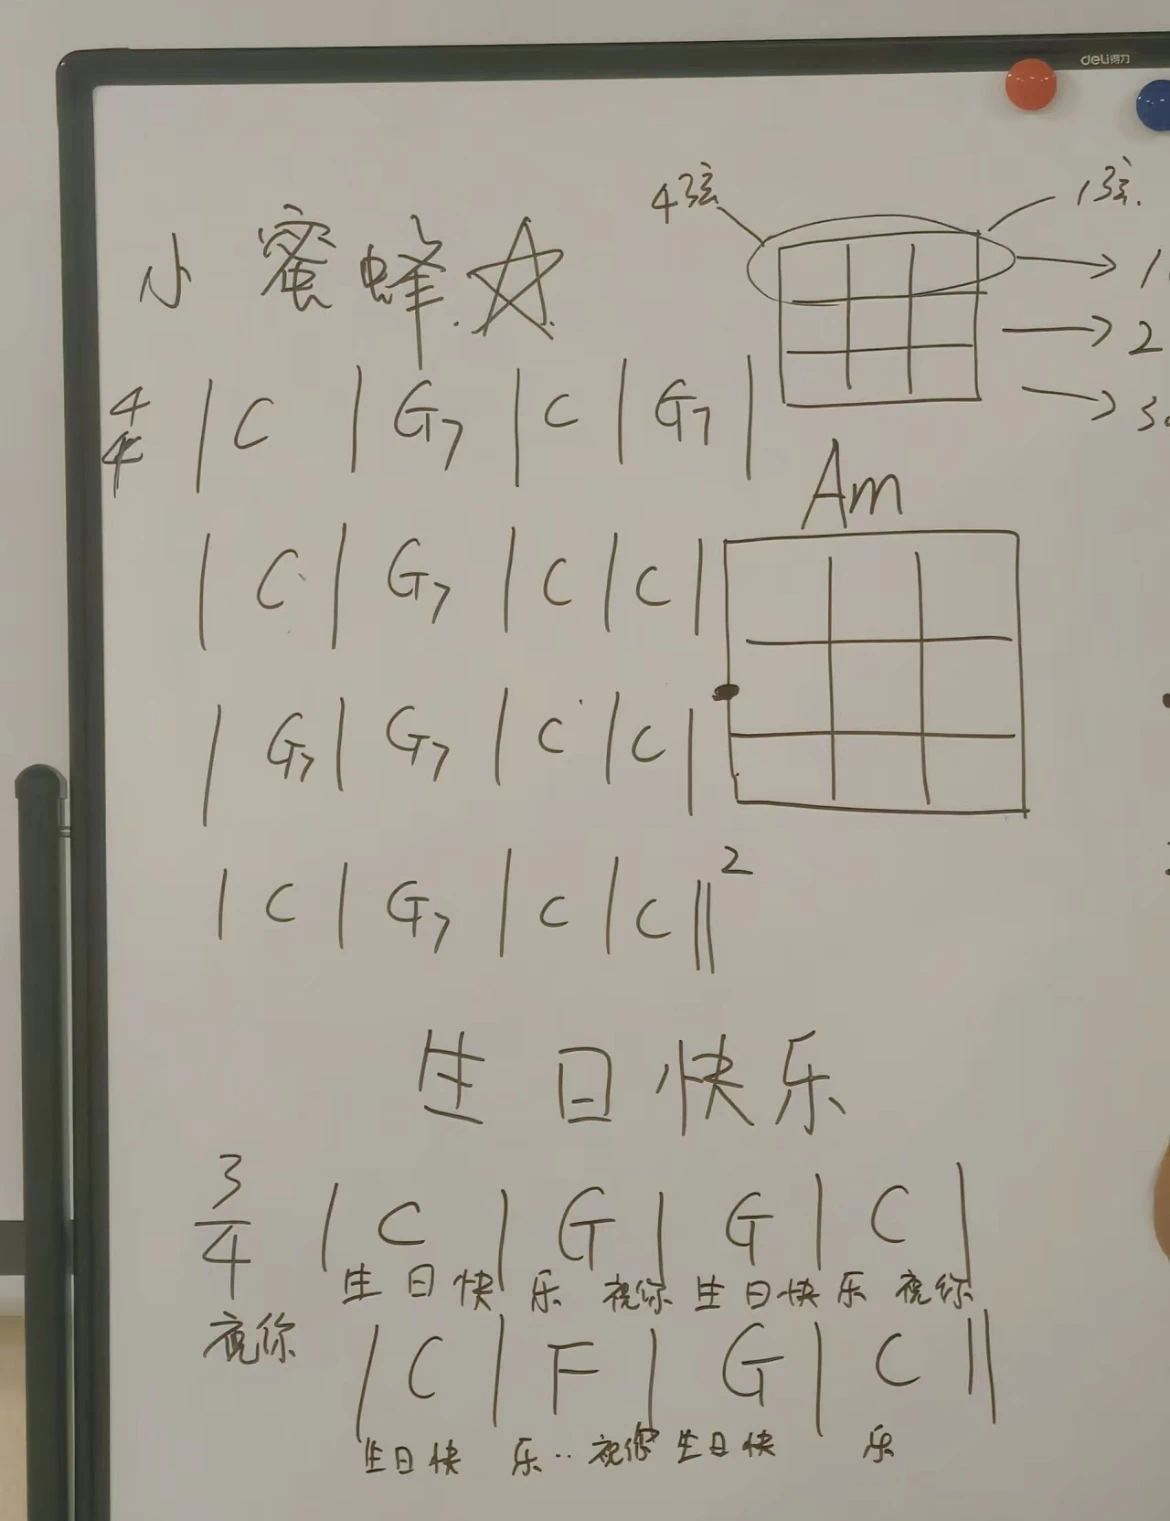 deli得力
4弦 1弦.
小蜜蜂.☆
1
2
3
4/4 | C | G7 | C | G7 |
Am
| C | G7 | C | C |
| G7 | G7 | C | C |
| C | G7 | C | C ‖2
生日快乐
3/4 | C | G | G | C |
祝你 生日快乐 祝你 生日快乐 祝你
| C | F | G | C ‖
生日快 乐·· 祝你 生日快 乐